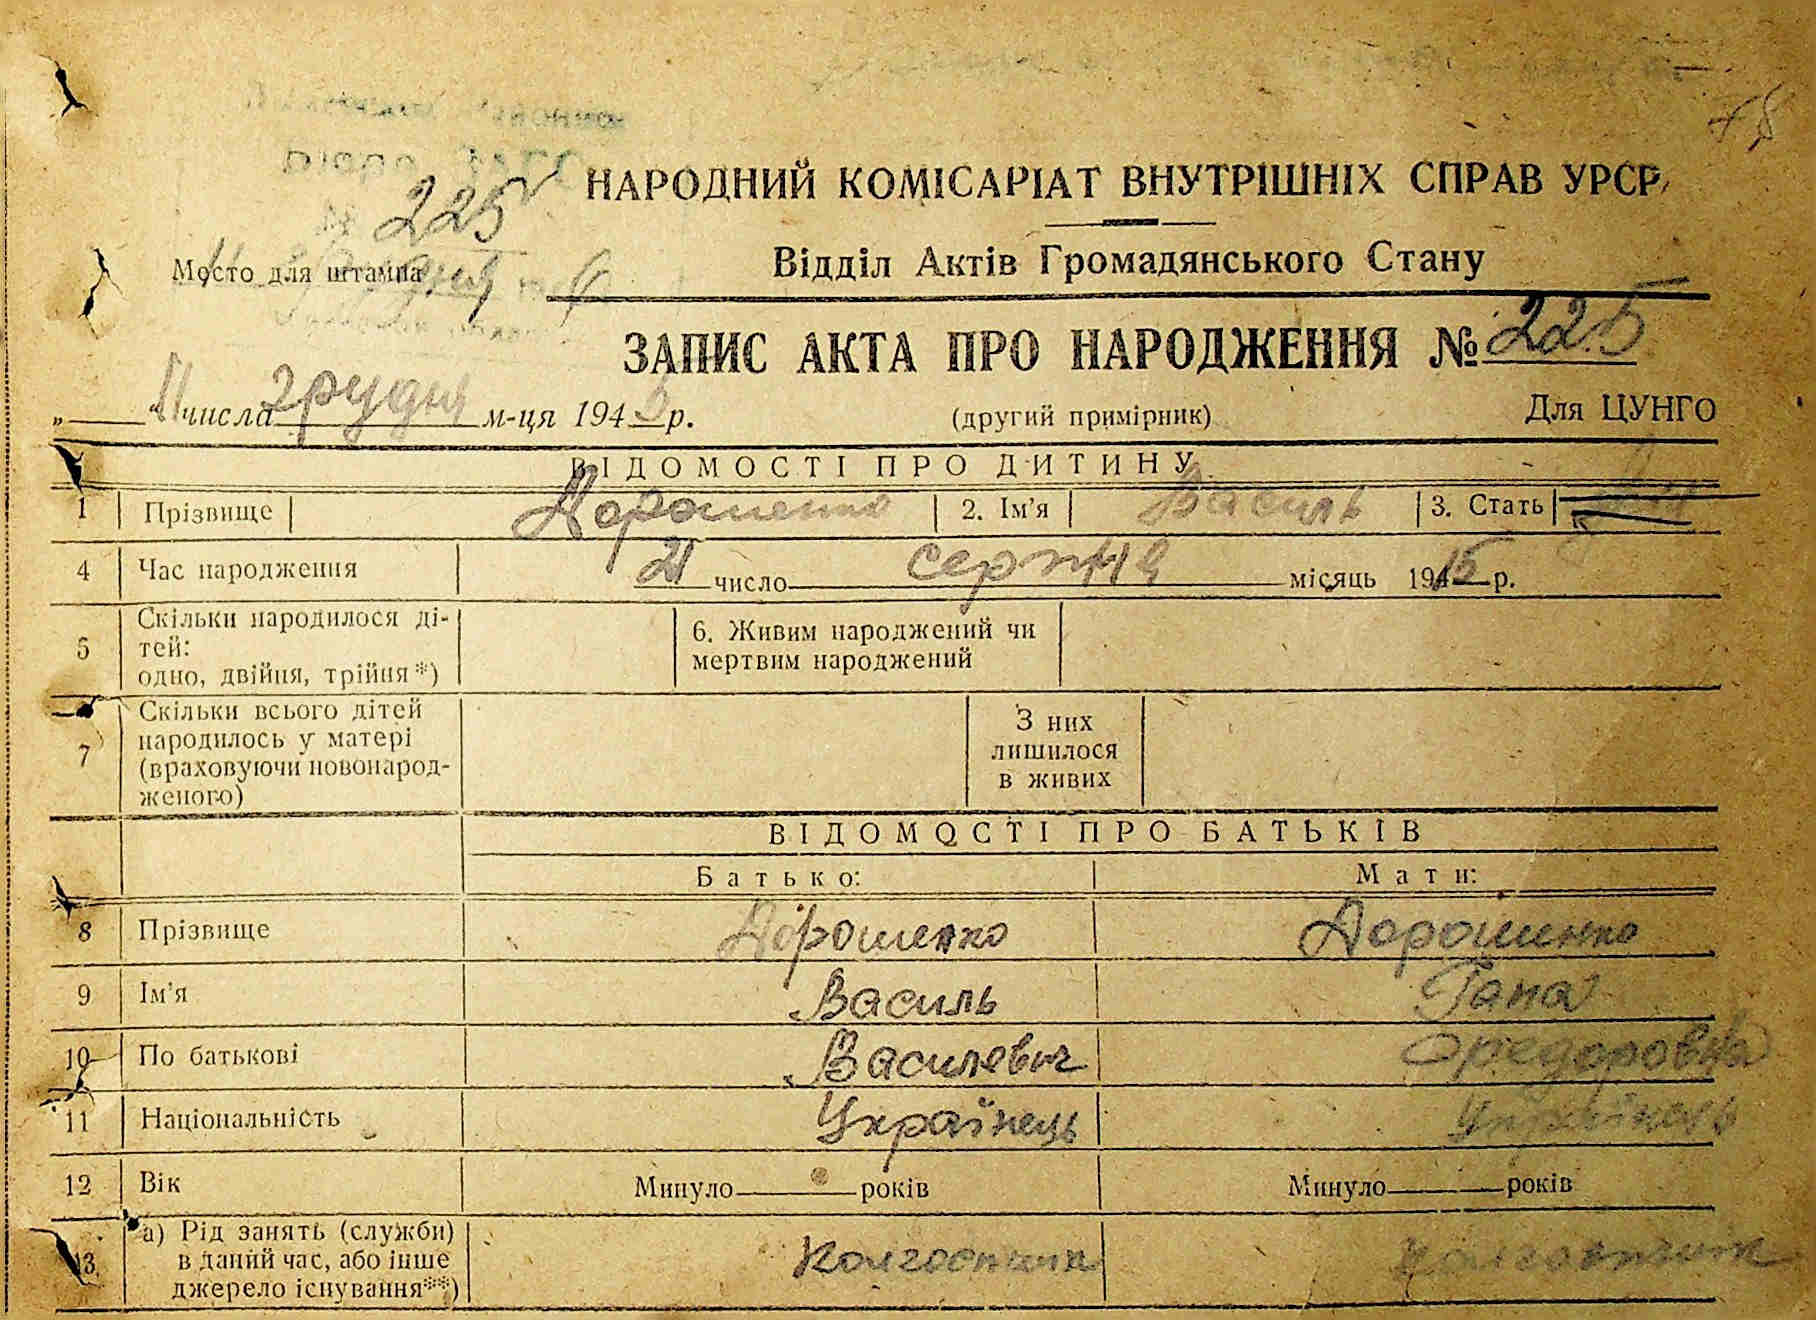 225
НАРОДНИЙ КОМІСАРІАТ ВНУТРІШНІХ СПРАВ УРСР
Место для штампа
Відділ Актів Громадянського Стану
ЗАПИС АКТА ПРО НАРОДЖЕННЯ № 225
„ 11 “ числа грудня м-ця 194 р.
(другий примірник)
Для ЦУНГО
ВІДОМОСТІ ПРО ДИТИНУ
1 Прізвище Дорошенко 2. Ім'я Василь 3. Стать
4 Час народження 21 число серпня місяць 1915 р.
5 Скільки народилося ді-
тей:
одно, двійня, трійня*)
6. Живим народжений чи
мертвим народжений
7 Скільки всього дітей
народилось у матері
(враховуючи новонарод-
женого)
З них
лишилося
в живих
ВІДОМОСТІ ПРО БАТЬКІВ
Батько: Мати:
8 Прізвище Дорошенко Дорошинко
9 Ім'я Василь Гана
10 По батькові Василевыч Федоровна
11 Національність Українець Українець
12 Вік Минуло років Минуло років
13 а) Рід занять (служби)
в даний час, або інше
джерело існування**)
Колгоспник Колгоспник